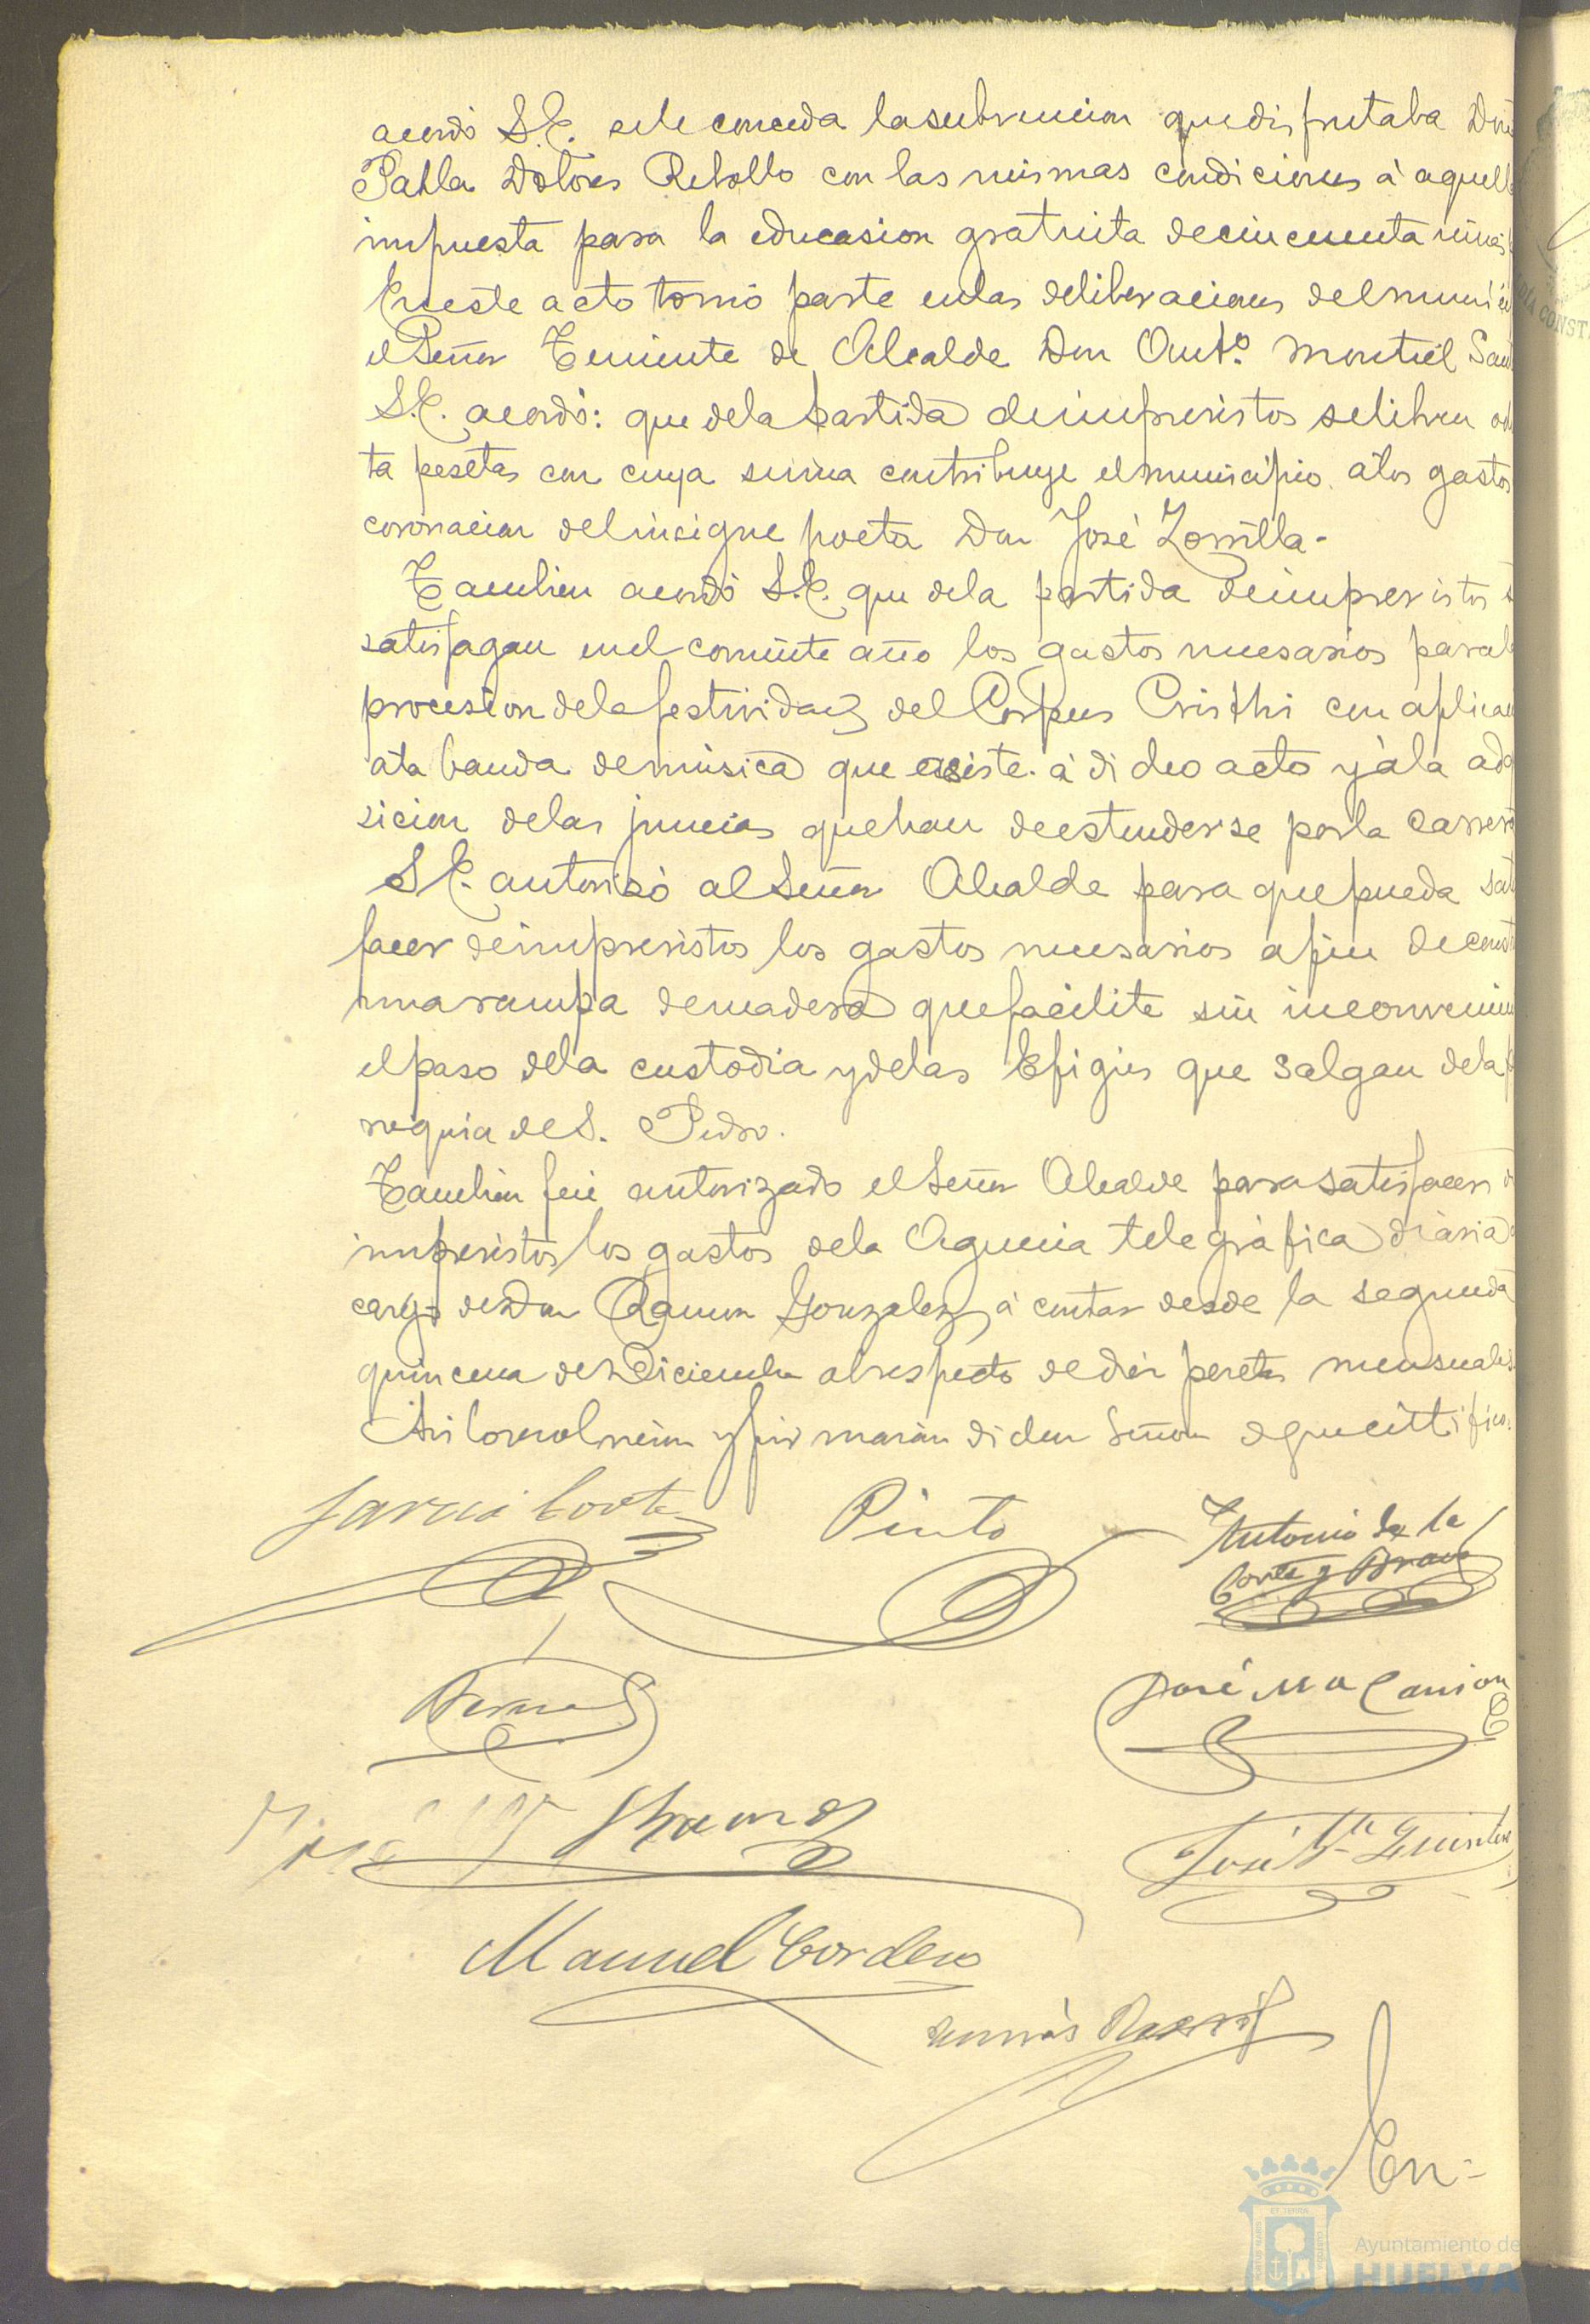 acordó S.E. se le conceda la subvencion que disfrutaba Doña
Pabla Dolores Rebollo con las mismas condiciones á aquella
impuesta para la educasion gratuita de cincuenta niñas
En este acto tomó parte en las deliberaciones del munici
el Señor Teniente de Alcalde Don Antº. Montiel
S.E. acordó: que de la partida de imprevistos se libren
ta pesetas con cuya suma contribuye el municipio á los gastos
coronacion del insigne poeta Don José Zorrilla-
Tambien acordó S.E. que de la partida de imprevistos
satisfagan en el corriente año los gastos nuesarios para la
procesion de la festividad del Corpus Cristhi con aplicac
a la banda de música que asiste á dicho acto y á la adq
sicion de las juncias que han de estenderse por la carrera
S.E. autorisó al Señor Alcalde para que pueda sat
facer de imprevistos los gastos nuesarios a fin de const
una rampa de madera que facilite sin inconvenien
el paso de la custodia y de las Efigies que salgan de la
roquia de S. Pedro.
Tambien fué autorizado el Señor Alcalde para satisfacer d
imprevistos los gastos de la Agencia telegráfica diaria
cargo de Don Ramon Gonzalez, á contar desde la segunda
quincena de Diciembre al respecto de diez pesetas mensuales
Asi lo resolvieron y firmarán dichos Señores de que certifico.
Garcia Cortes
Pinto
Antonio de la
Corte y Bravo
José Mª Carrion
José Mª Quintero
Manuel Cordero
Tomás
En-
Ayuntamiento de
HUELVA